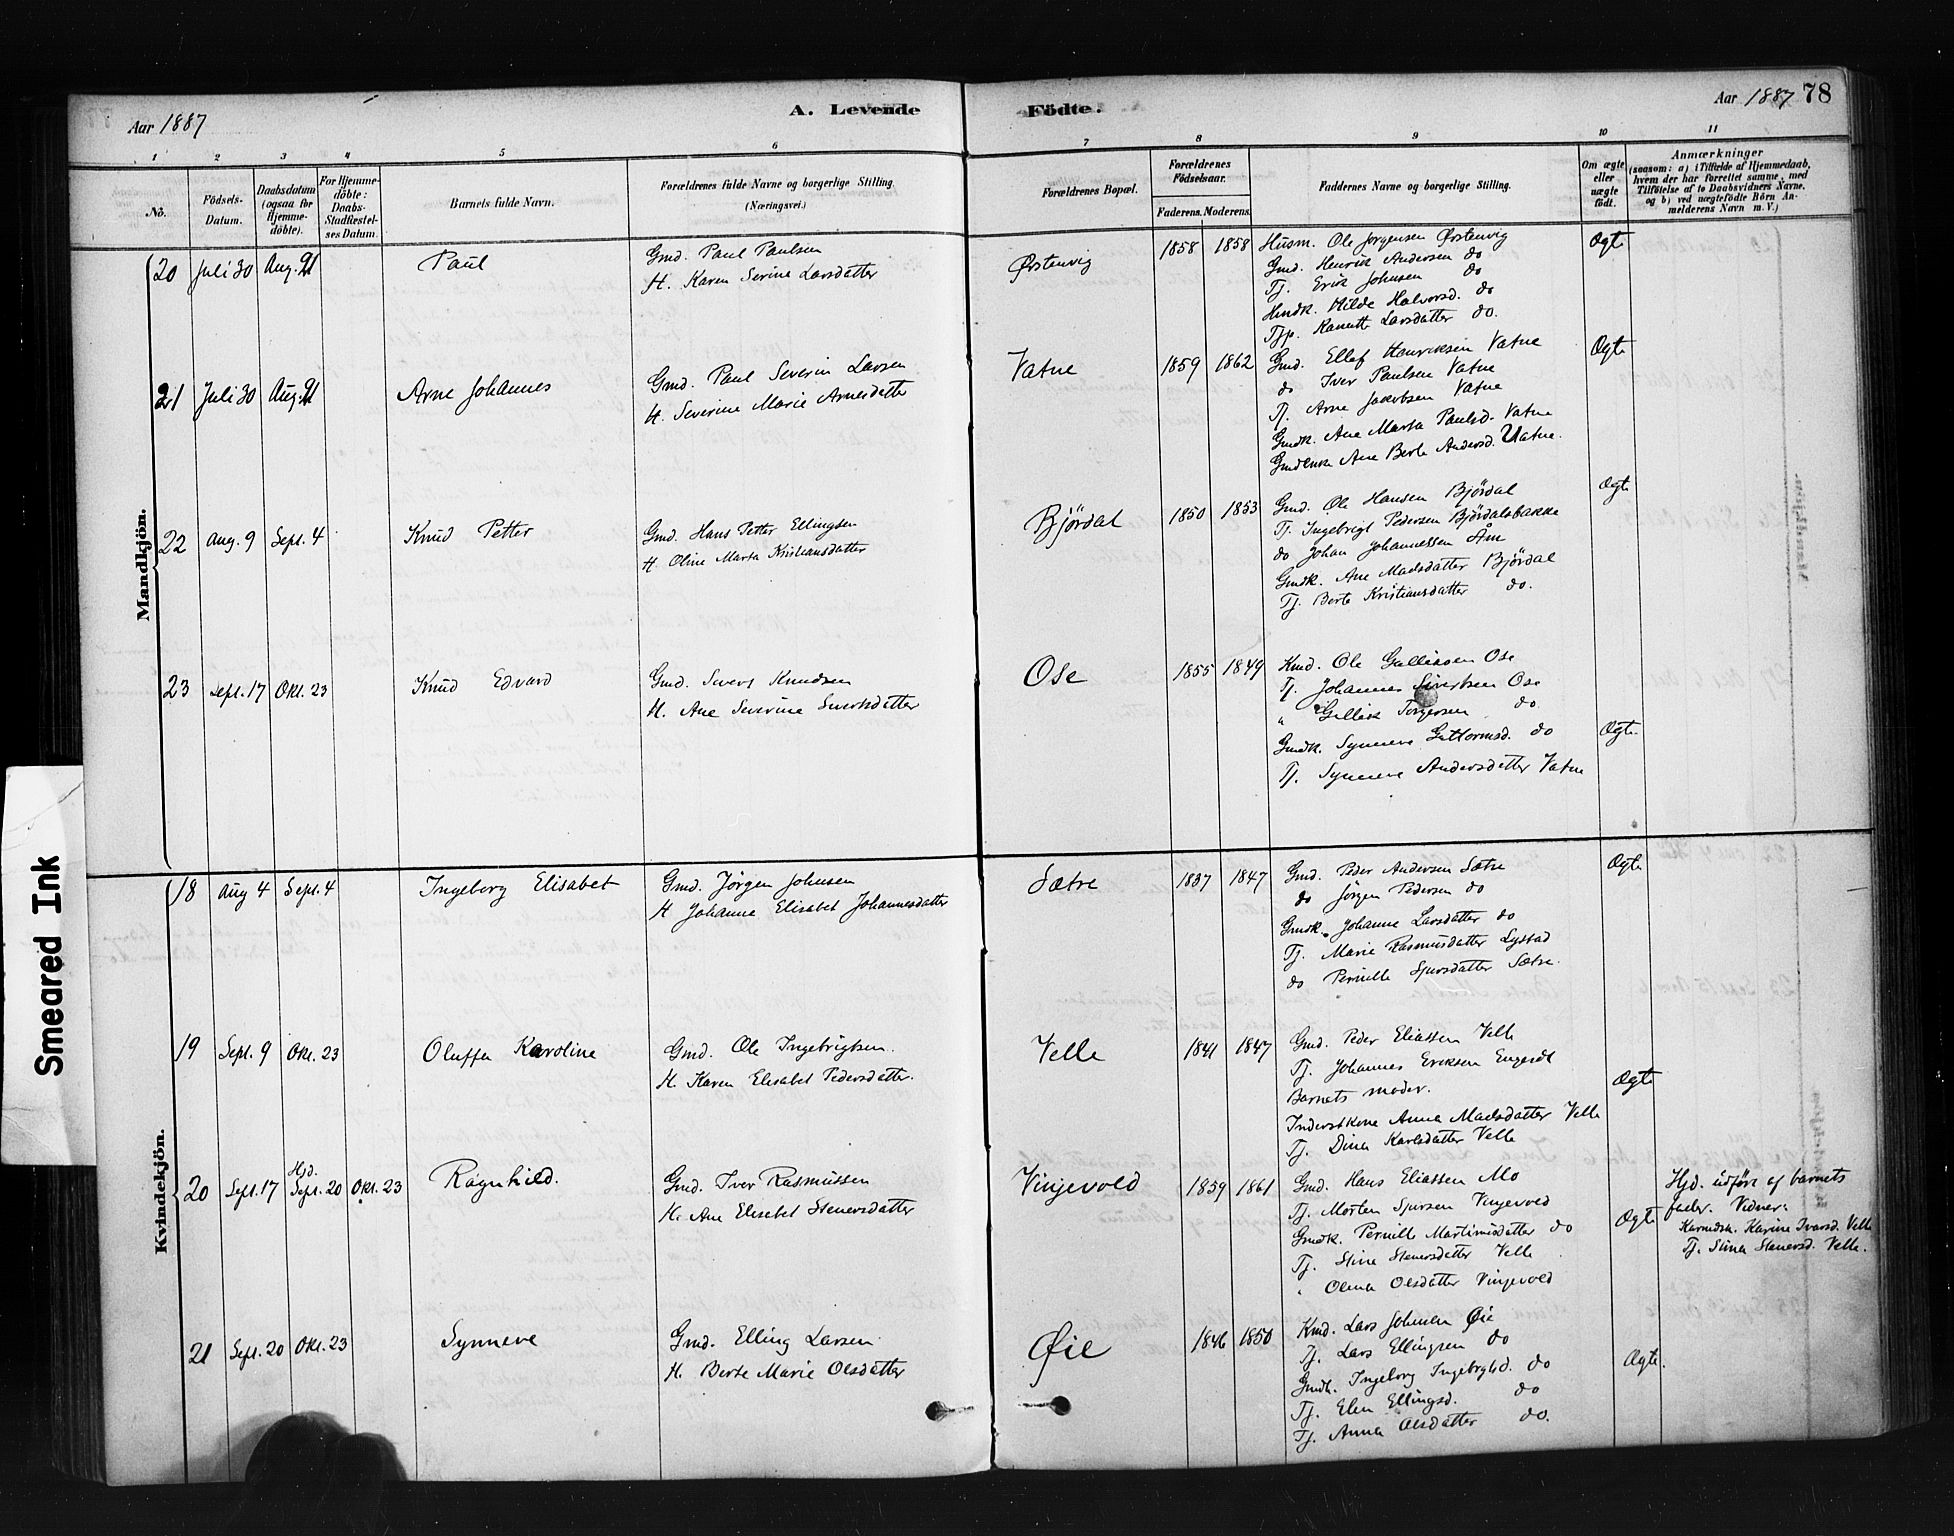 Aar 1887
A. Levende
Födte.
Aar 1887
78
1 2 3 4 5 6 7 8 9 10 11
No.
Födsels-Datum.
Daabsdatum (ogsaa for Hjemmedöbte).
For Hjemmedöbte: Daabs-Stadfæstelses Datum.
Barnets fulde Navn.
Forældrenes fulde Navne og borgerlige Stilling (Næringsvei.)
Forældrenes Bopæl.
Forældrenes Födselsaar.
Faderens. Moderens.
Faddernes Navne og borgerlige Stilling.
Om ægte eller uægte födt.
Anmærkninger
(saasom: a) i Tilfælde af Hjemmedaab, hvem der har forrettet samme, med Tilföielse af to Daabsvidners Navne, og b) ved uægtefödte Börn Anmelderens Navn m. V.)
Mandkjön.
20 Juli 30 Aug. 21 Paul
Gmd. Paul Paulsen
H. Karen Serine Larsdatter
Ørstenvig 1858 1858
Husm. Ole Jørgensen Ørstenvig
Gmd. Henrik Andersen do
Tj. Erik Johnsen do
Hmdk. Hilde Halvorsd. do
Tjp. Kanutte Larsdatter do.
Ægte
21 Juli 30 Aug. 21 Arne Johannes
Gmd. Paul Severin Larsen
H. Severine Marie Arnesdatter
Vatne 1859 1862
Gmd. Ellef Henriksen Vatne
do Iver Paulsen Vatne
Tj. Arne Jakobsen Vatne
Gmdk. Ane Marta Paulsd. Vatne
Gmdenke Ane Berte Andersd. Vatne.
Ægte
22 Aug. 9 Sept. 4 Knud Petter
Gmd. Hans Petter Ellingsen
H. Oline Marta Kristiansdatter
Björdal 1850 1853
Gmd. Ole Hansen Björdal
Tj. Ingebrigt Pedersen Björdalsbakke
do Johan Johannessen Åm
Gmdk. Ane Madsdatter Björdal
Tj. Berte Kristiansdatter do.
Ægte
23 Sept. 17 Okt. 23 Knud Edvard
Gmd. Sivert Knudsen
H. Ane Severine Sivertsdatter
Ose 1855 1849
Kmd. Ole Gulliksen Ose
Tj. Johannes Sivertsen Ose
" Gullik Torgersen do.
Gmdk. Synneve Guttormsd. do
Tj. Synneve Andersdatter Vatne
Ægte.
Kvindekjön.
18 Aug 4 Sept. 4 Ingeborg Elisabet
Gmd. Jörgen Johnsen
H Johanne Elisabet Johannesdatter
Sætre 1837 1847
Gmd. Peder Andersen Sætre
do Jörgen Pedersen do
Gmdk. Johanne Larsdatter do
Tj. Marie Rasmusdatter Lystad
do Pernille Sjursdatter Sætre.
Ægte
19 Sept. 9 Okt. 23 Oluffa Karoline
Gmd. Ole Ingebrigtsen.
H. Karen Elisabet Pedersdatter.
Velle 1841 1847
Gmd. Peder Eliassen Velle
Tj. Johannes Eriksen Engeset
Barnets moder.
Inderstkone Anna Madsdatter Velle
Tj. Dina Karlsdatter Velle
Ægte
20 Sept. 17 Hjd. Sept. 20 Okt. 23 Ragnhild.
Gmd. Iver Rasmussen
H. Ane Elisabet Stenersdatter
Vinjevold 1859 1861
Gmd. Hans Eliassen Mo
Tj. Morten Sjursen Vinjevold
Gmdk. Pernille Martinusdatter do
Tj. Stine Stenersdatter Velle
" Olina Olsdatter Vinjevold
Ægte
Hjd. udført af barnets
fader. Vidner:
Karine Ivarsd. Velle
Tj. Stina Stenersd. Velle.
21 Sept. 20 Okt. 23 Synneve
Gmd. Elling Larsen
H. Berte Marie Olsdatter
Øie 1846 1850
Kmd. Lars Johnsen Øie
Tj. Lars Ellingsen do
Gmdk. Ingeborg Ingebrigtsd. do
Tj. Elen Ellingsd. do
Tj. Anna Olsdatter do.
Ægte.
Smeared Ink